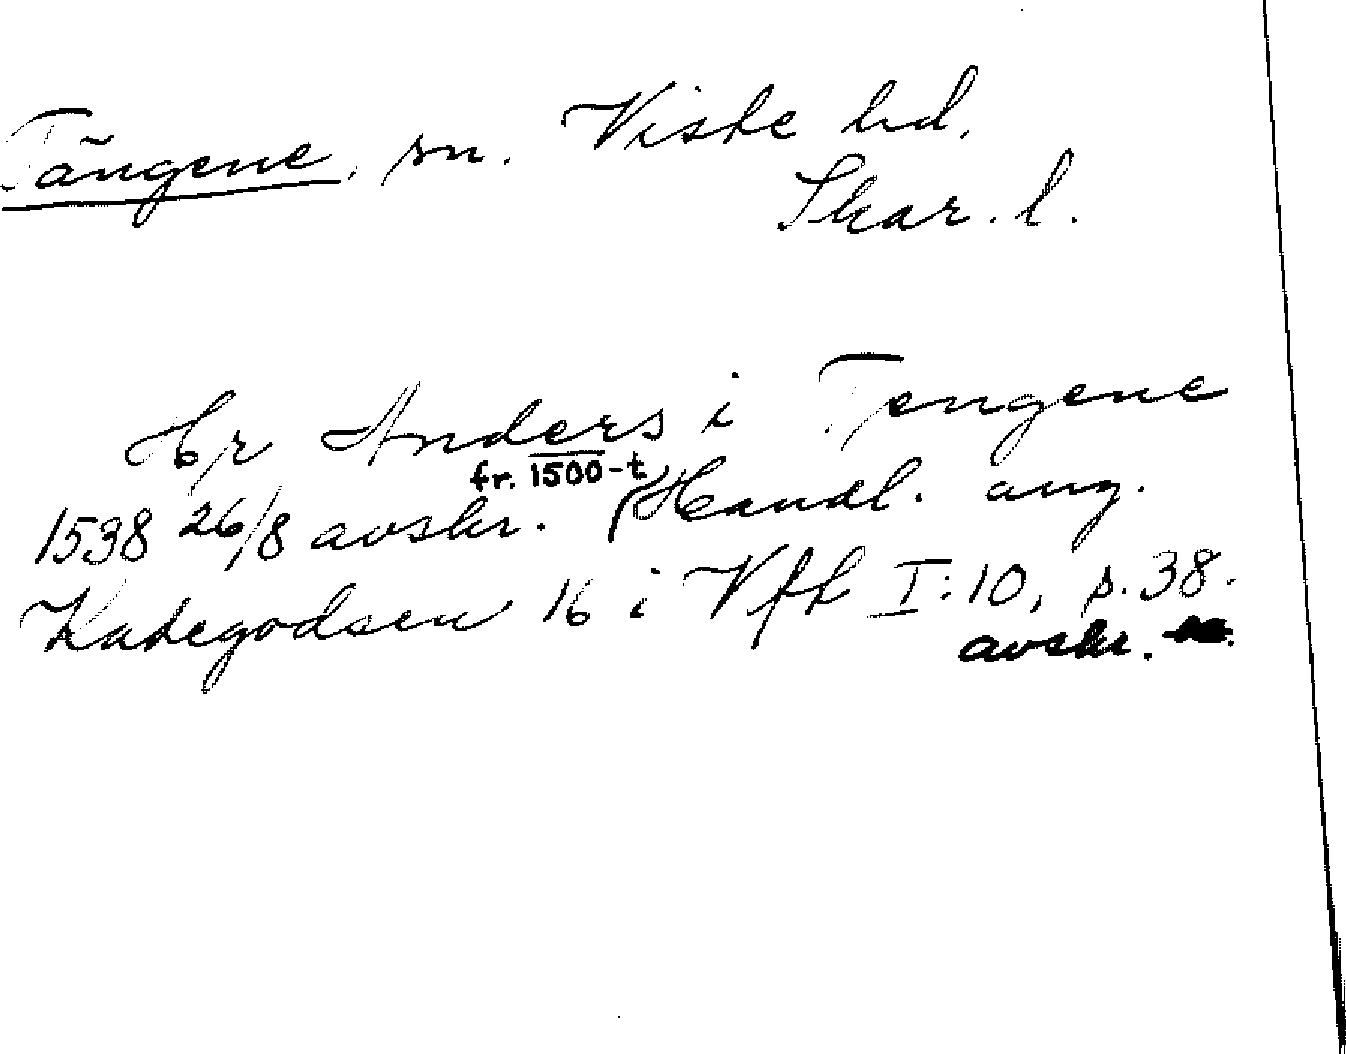 Tängene, sn. Viste hd.
Skar. l.
Hr Anders i Tengene
fr. 1500-t
1538 26/8 avskr. (Handl. ang.
Kakegodsen 16 i Vfh I:10, p. 38.
avskr.